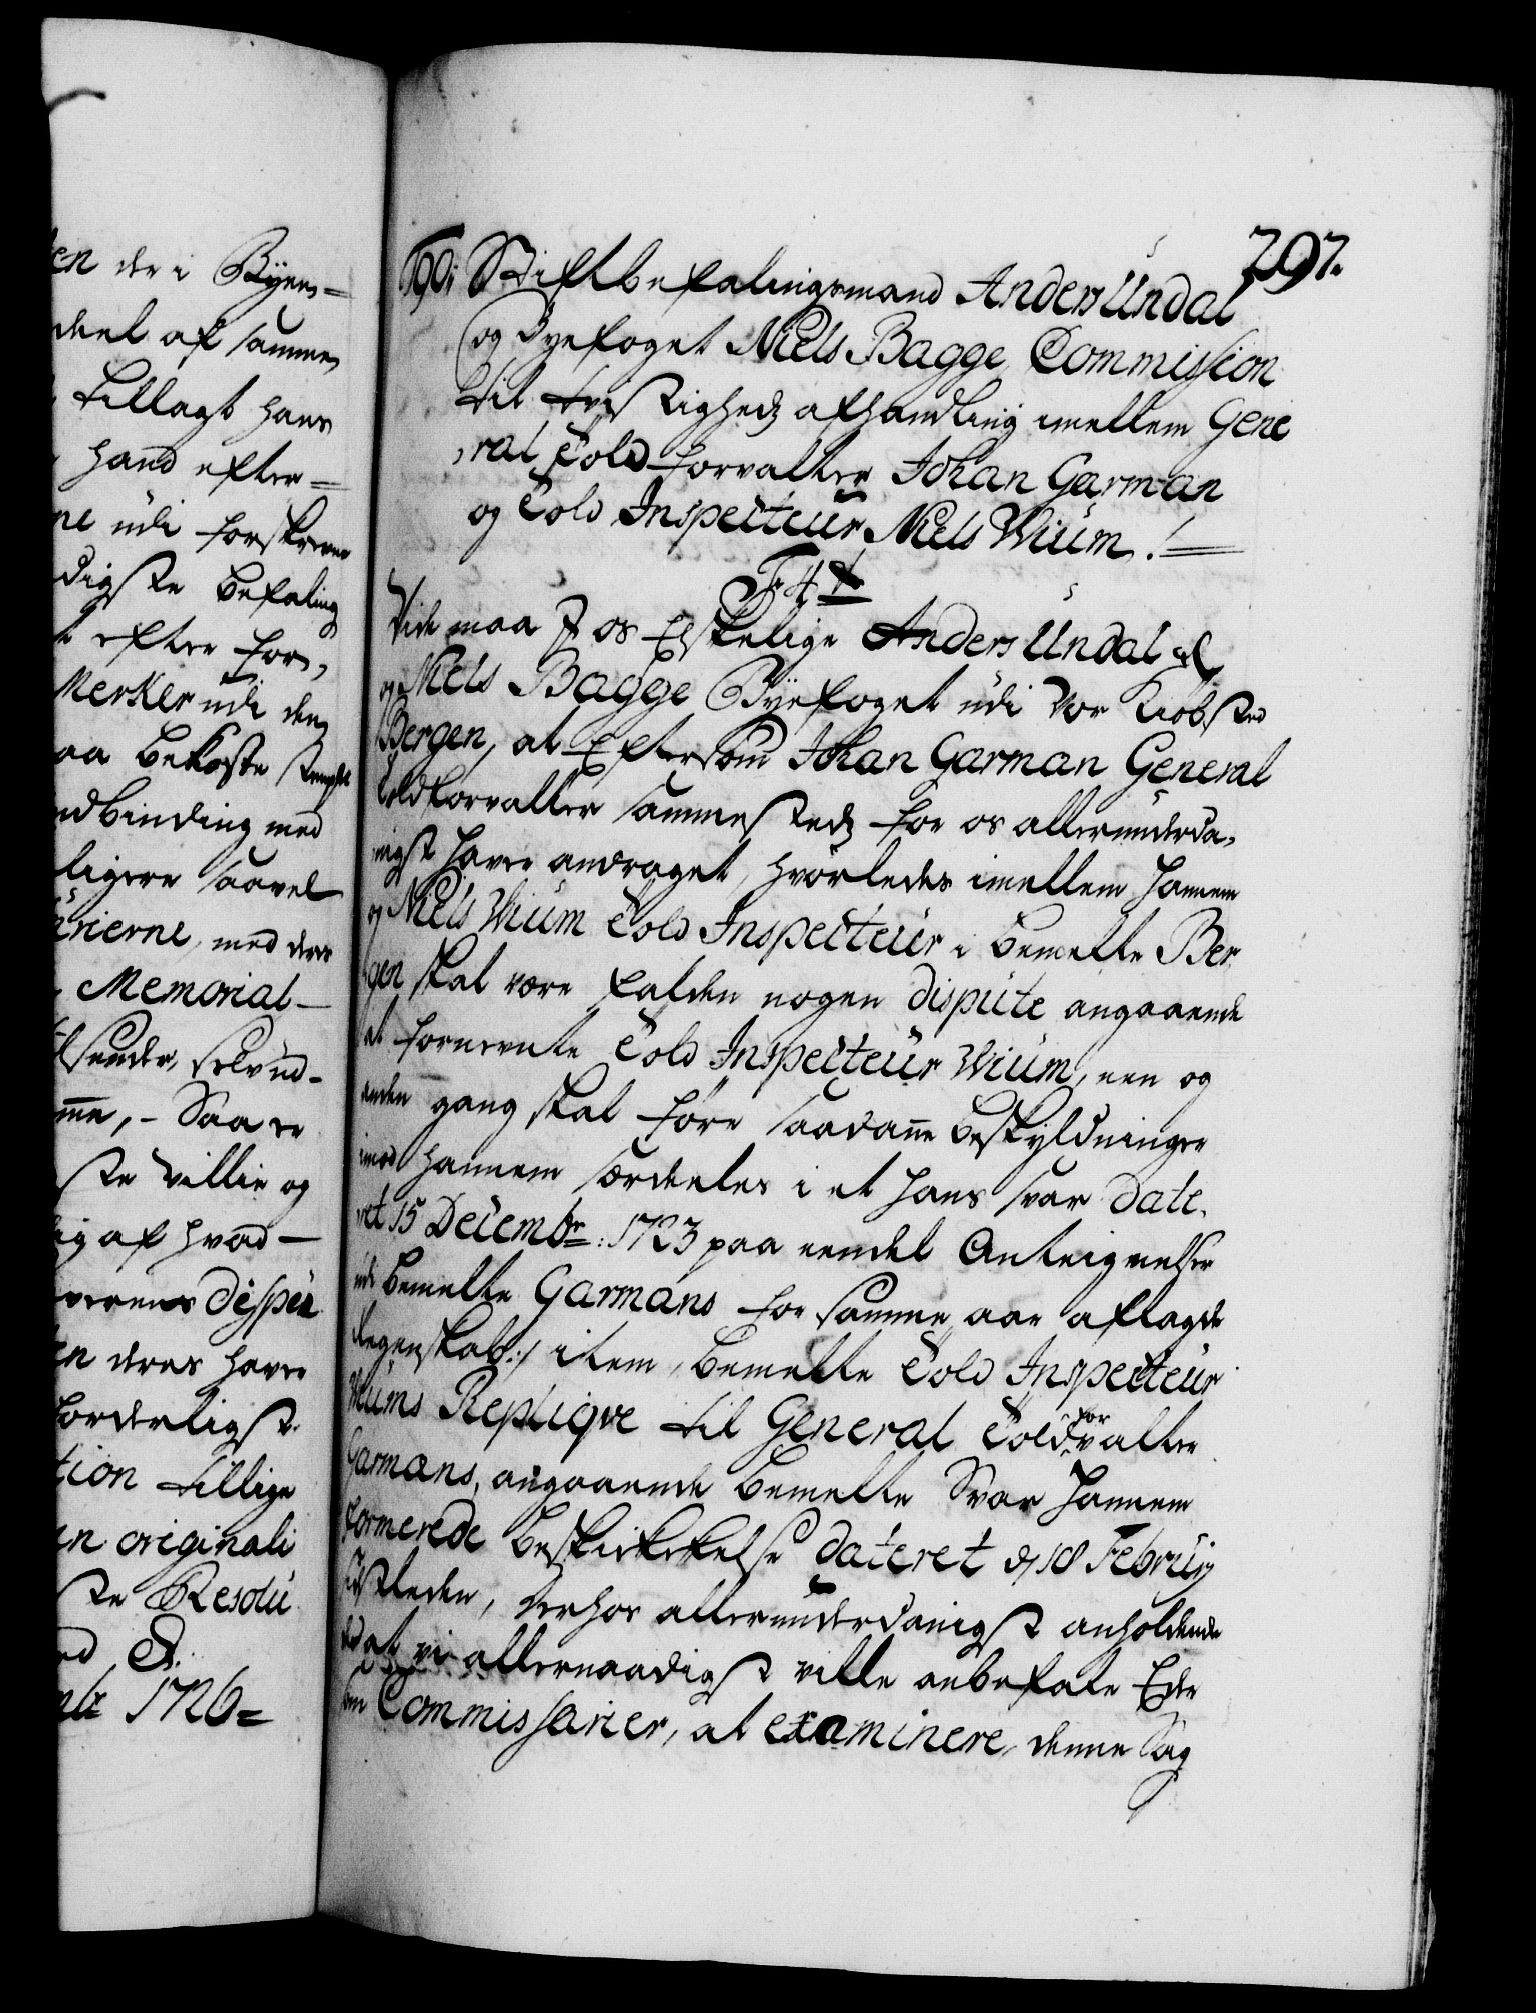 en der i Byens=
deel af samme
tillagt hans
hand efter=
ne udi forskrevne
digste befaling
efter for,
Merker udi den
aa bekoste
ndbinding med
ligere saavel
ririerne, med deres
Memorial-
sender,
me, - Saa er
ste villie og
af hvad-
verens
n deres haver
forderligst
tion tillige
in originali
ste Resolu
d
mb: 1726=
797.
Stiftbefalingsmand Anders Undal
og Byefoget Niels Bagge, Commission
til tvistigheds afhandling imellem Gene
,ral Told forvalter Johan Garman
og Told Inspecteur Niels Wium. !
F: 4 t
Vide maa I os Elskelige Anders Undal &c
og Niels Bagge Byefoget udi Vor Kiöbsted
Bergen, at Eftersom Johan Garman General
toldforvalter sammesteds for os allerunderda,
nigst haver andraget, hvorledes imellem hannem
og Niels Wium Told Inspecteur i bemelte Ber
gen skal være falden nogen dispute angaaende
at fornevnte Told Inspecteur Wium, een og
anden gang skal före saadanne beskyldninger
imod hannem særdeles i et hans svar date,
ret 15 Decembr: 1723 paa eendel Antegnelser
udi bemelte Garmans for samme aar aflagde
Regenskab:/ item, bemelte Told Inspecteur
Wiums Replique til General Toldforvalter
Garmans, angaaende bemelte Svar hannem
formerede beskickelse dateret d 18 Februarij
sistleden, derhos allerunderdanigst anholdende
at vi allernaadigst ville anbefale Eder
som Commissarier, at examinere, denne Sag